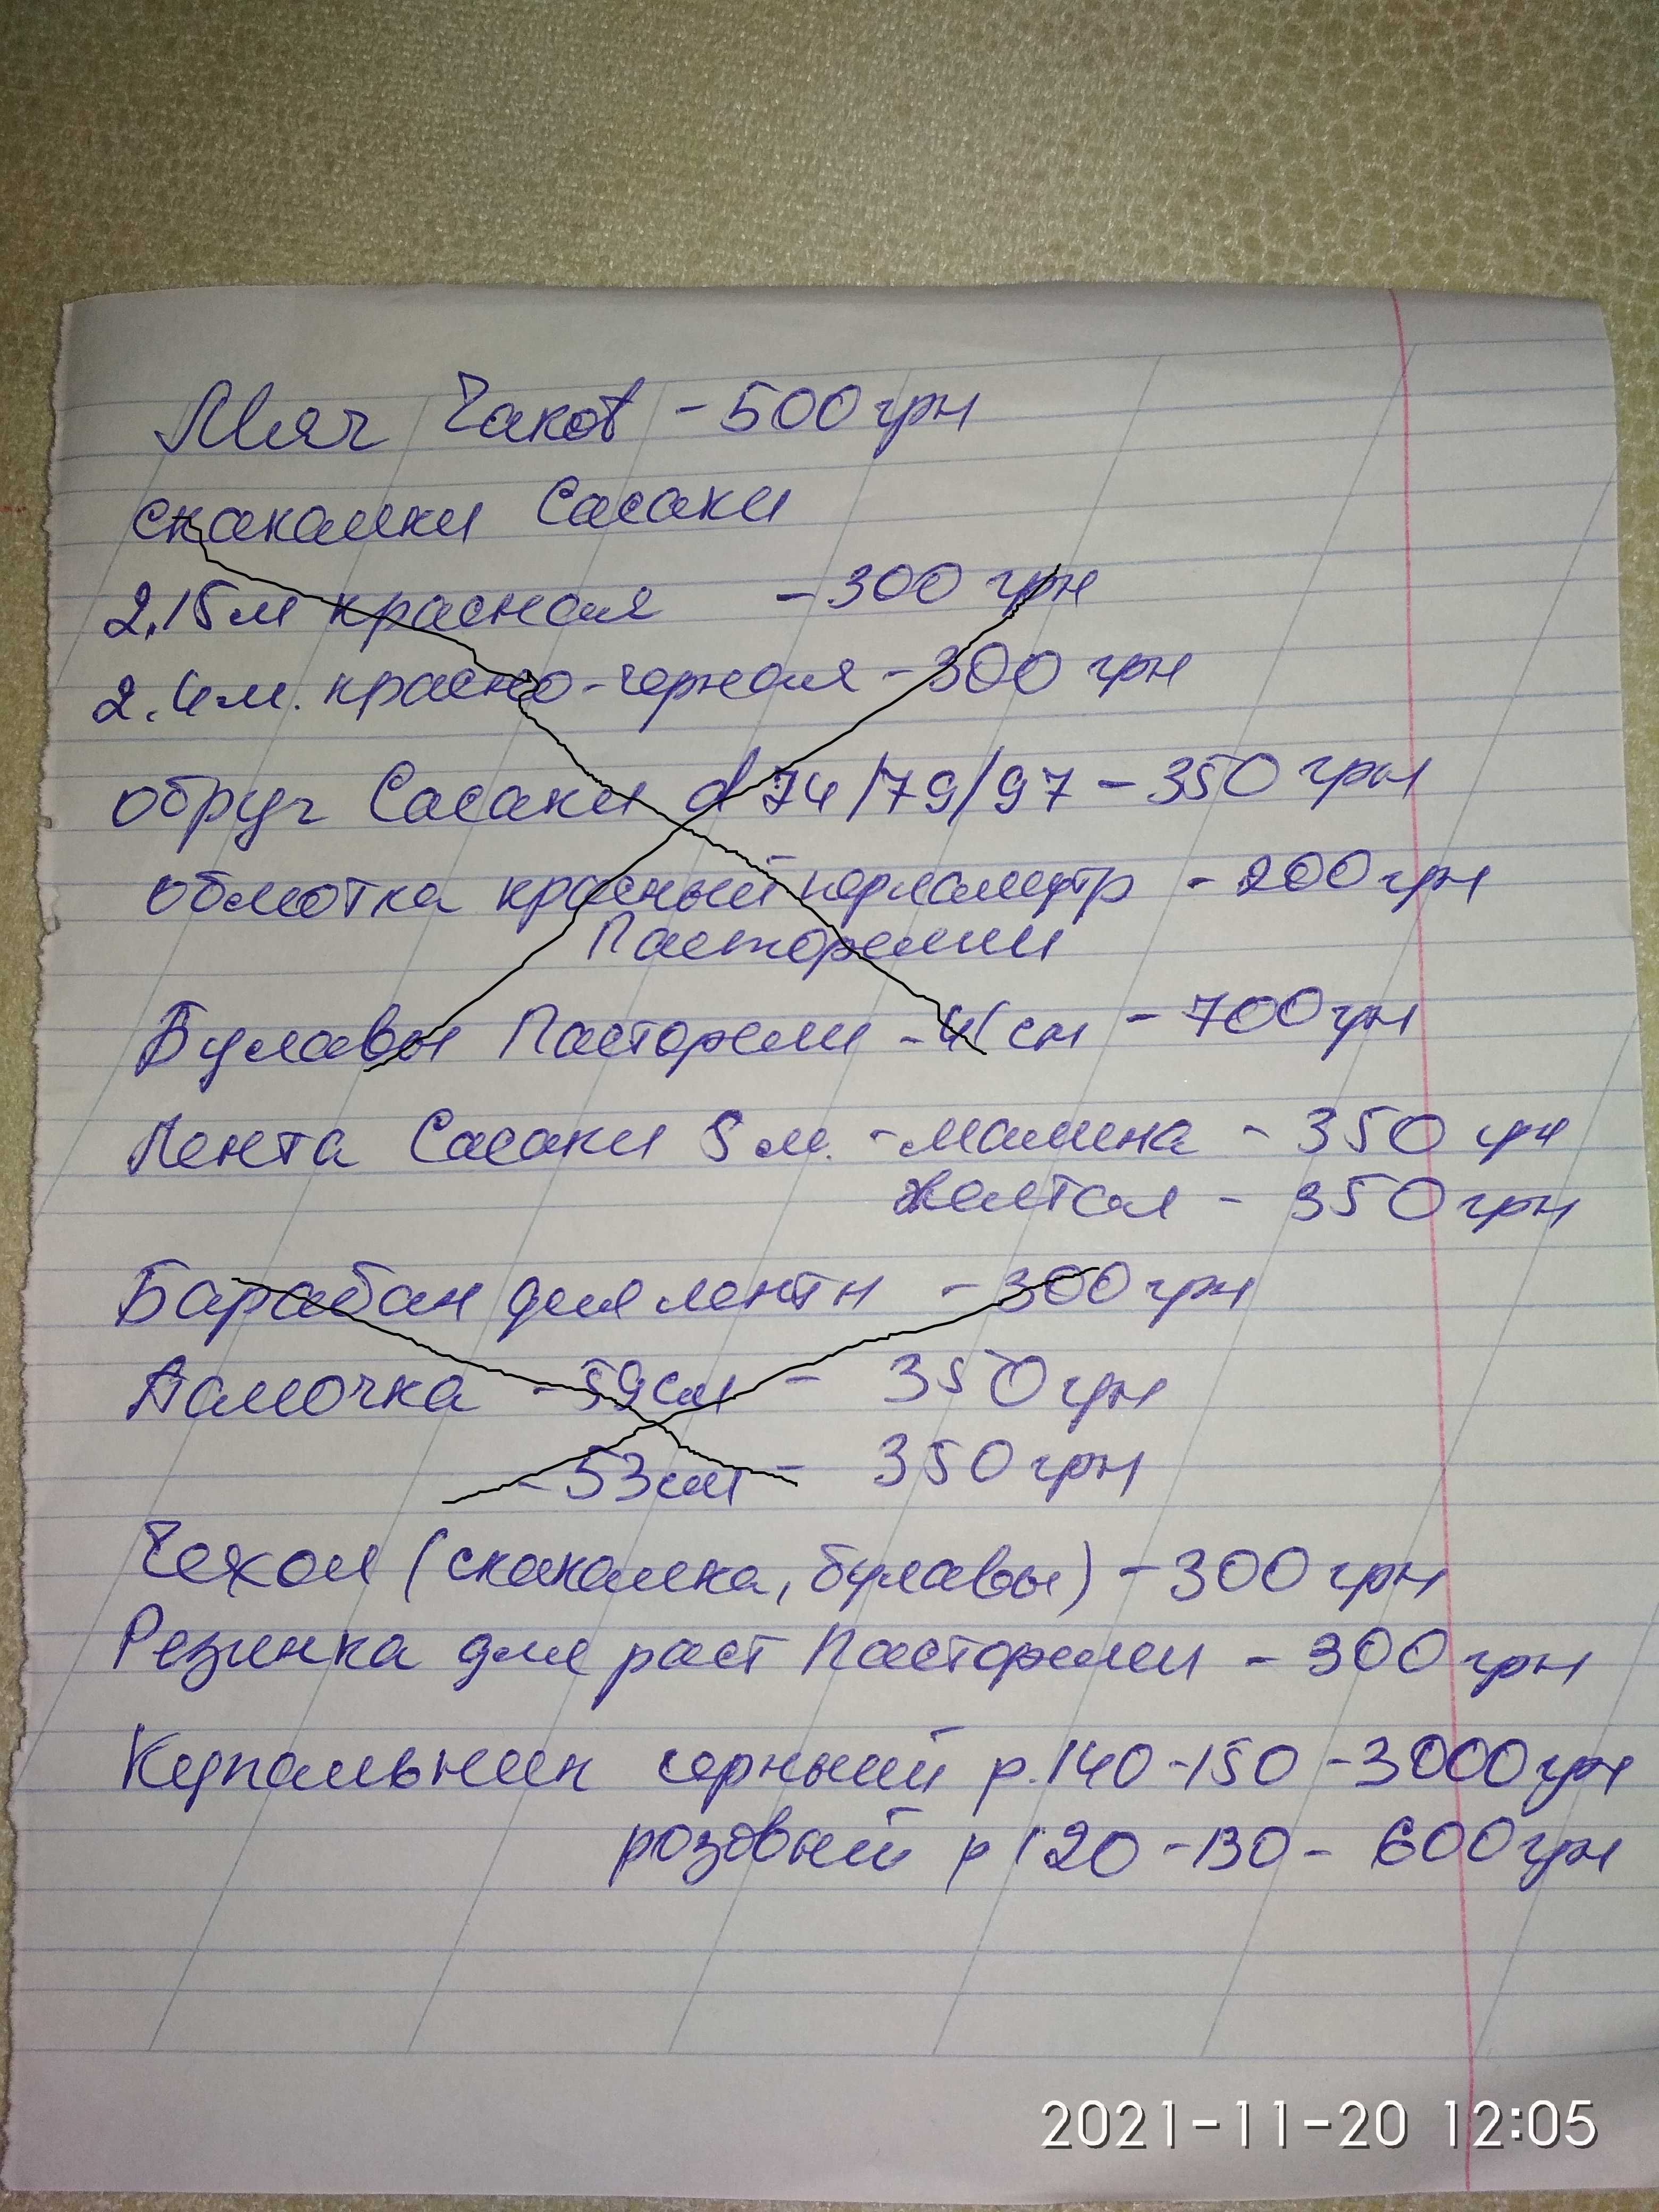 Мяч Чакот - 500 грн
скакалки Сасаки
2.15м красная - 300 грн
2.4м. красно-черная - 300 грн
обруч Сасаки d 74/79/97 - 350 грн
обмотка красный перламутр - 200 грн
Пасторелли
Булавы Пасторели - 41см - 700грн
Лента Сасаки 5м. - малина - 350 грн
Желтая - 350 грн
Барабан для ленты - 300 грн
Палочка - 59см - 350 грн
- 53см - 350 грн
Чехол (скакалка, булавы) - 300 грн
Резинка для раст Пасторелли - 300 грн
Купальник черный р.140-150 - 3000грн
розовый р 120-130 - 600грн
2021-11-20 12:05